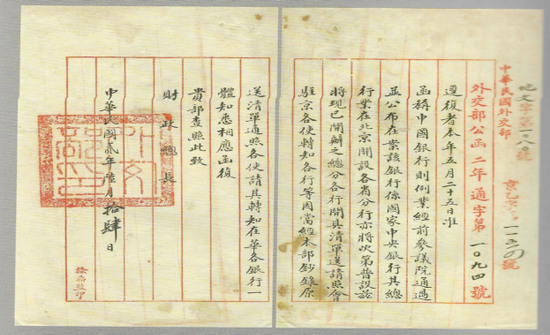 中華民國外交部
外交部公函二年通字第一〇九四號
逕復者本年五月二十五日准
函稱中國銀行則例業經前參議院通過
並公布在案該銀行係國家中央銀行其總
行業在北京開設各省分行亦將次第普設茲
將現已開辦之總分各行開具清單送請照會
駐京各使轉知各行等因當經本部鈔錄原
送清單通照各使請其轉知在華各銀行一
體知悉相應函復
貴部查照此致
財政總長
中華民國貳年陸月拾肆日